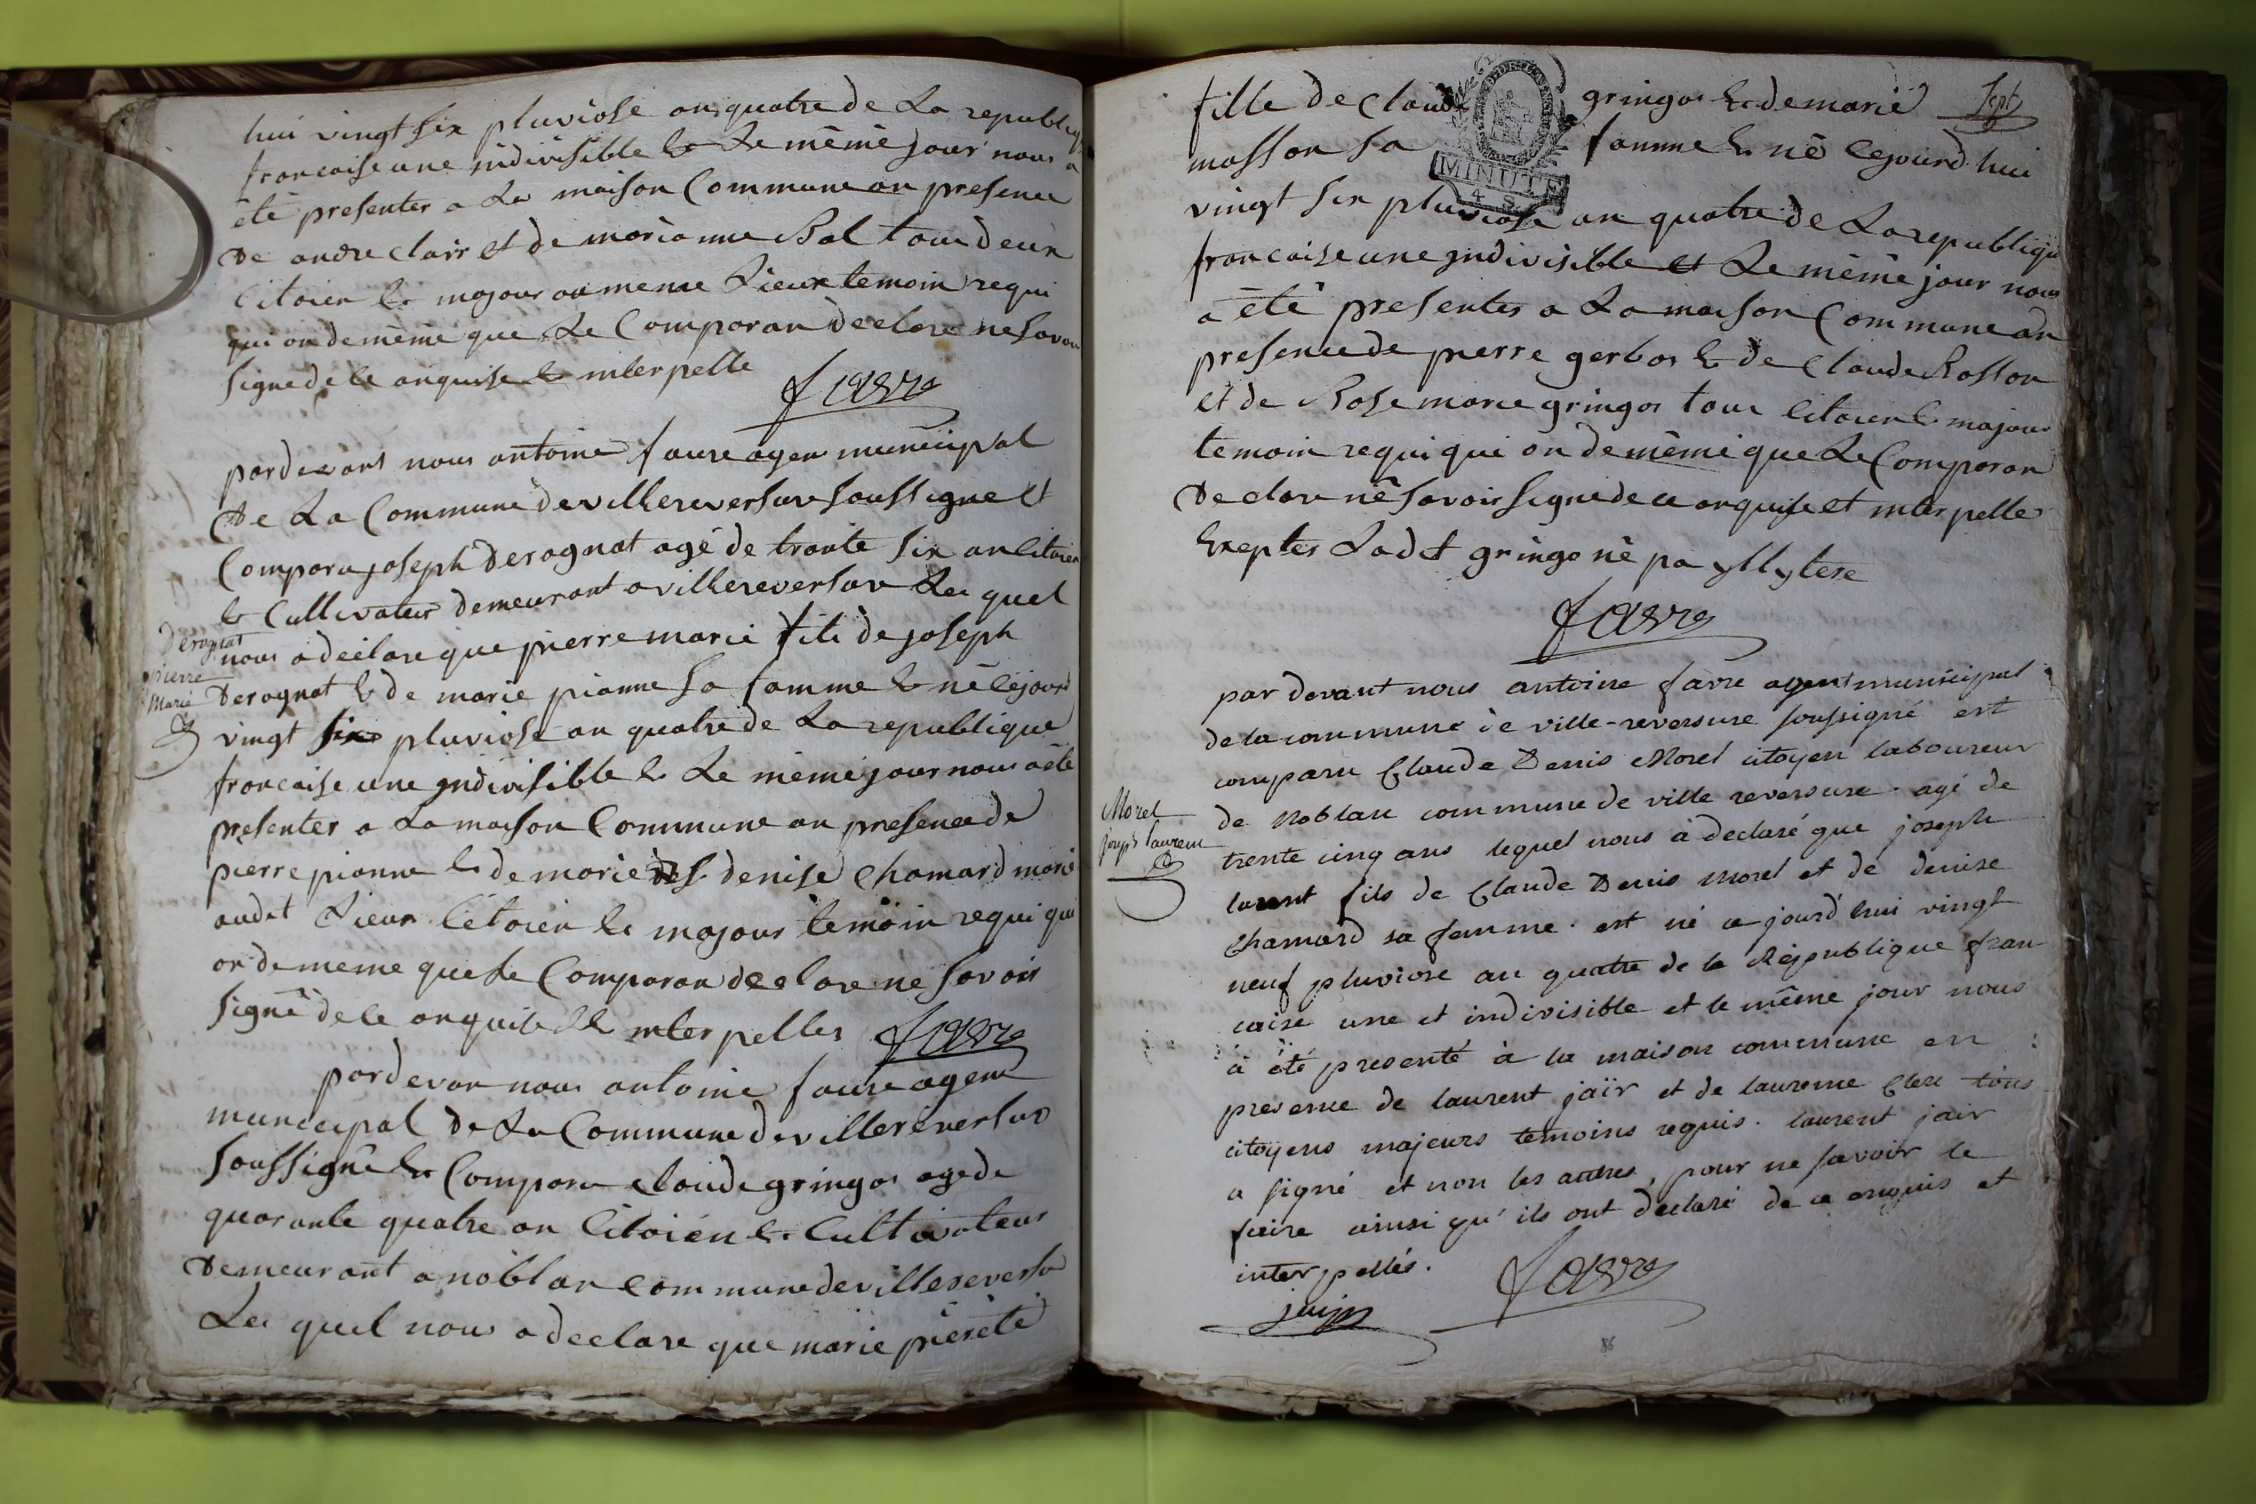 hui vingt six pluviose an quatre de La republiq
francaise une indivisible & Le même jour nous a
été presenter a La maison Commune an presence
De andre clair et de marianne Bal tous deux
Citoien & majour au meme Lieux temoin requi
qui on de même que Le Comparan declare ne savoi
signe de ce anquise & interpelle
favre
pardevant nous antoine faure agen municipal
De La Commune de villereversure soussigne et
Compara joseph Derognat agé de trante six an Citoien
& Cultivateur demeurant a villereversure Le quel
nous a declare que pierre marie fils de joseph
Derognat
pierre
Marie
Derognat & de marie pianne sa famme & né cejourd
vingt six pluviose an quatre de La republique
francaise une yndivisible & Le même jour nous a été
presenter a La maison Commune an presence de
pierre pianne & de marie denise Chamard marié
audit Lieux Citoien & majour temoin requi qui
on de meme que Le Comparan declare ne savoir
signé de ce anquise & interpelles favre
pardevan nous antoine faure agent
municipal De La Commune de villereversure
soussigné & Compara claude gringos age de
quarante quatre an Citoien & Cultivateur
Demeurant a noblan commune de villereversu
Le quel nous a declare que marie pierete
fille de Claude gringos & de marie
Sept
masson sa famme & né cejourd hui
MINUTE
4 S.
vingt six pluviose an quatre de La republiqu
francaise une yndivisible et Le même jour nous
a été presenter a La maison Commune an
presence de pierre gerbos & de Claude Rosson
et de Rose marie gringos tous Citoien & majour
temoin requi qui on de même que Le Comparan
Declare né savoir signe de ce anquise et interpelle
Exeptes Ladit gringo né pa yllytere
favre
par devant nous antoine favre agent municipal
de la commune de ville-reversure soussigné est
comparu Claude Denis Morel citoyen laboureur
de Noblan commune de ville reversure. agé de
Morel
joseph laurent
trente cinq ans lequel nous à declaré que joseph
laurent fils de Claude Denis Morel et de denise
Chamard sa femme. est né ce jourd'hui vingt
neuf pluviose an quatre de la République fran-
caise une et indivisible et le même jour nous
à été presenté à la maison commune en
presence de laurent jaïr et de laurence Clere tous
citoyens majeurs temoins requis. laurent jair
a signé et non les autres, pour ne savoir le
faire ainsi qu'ils ont declaré de ce enquis et
interpellés.
favre
jair